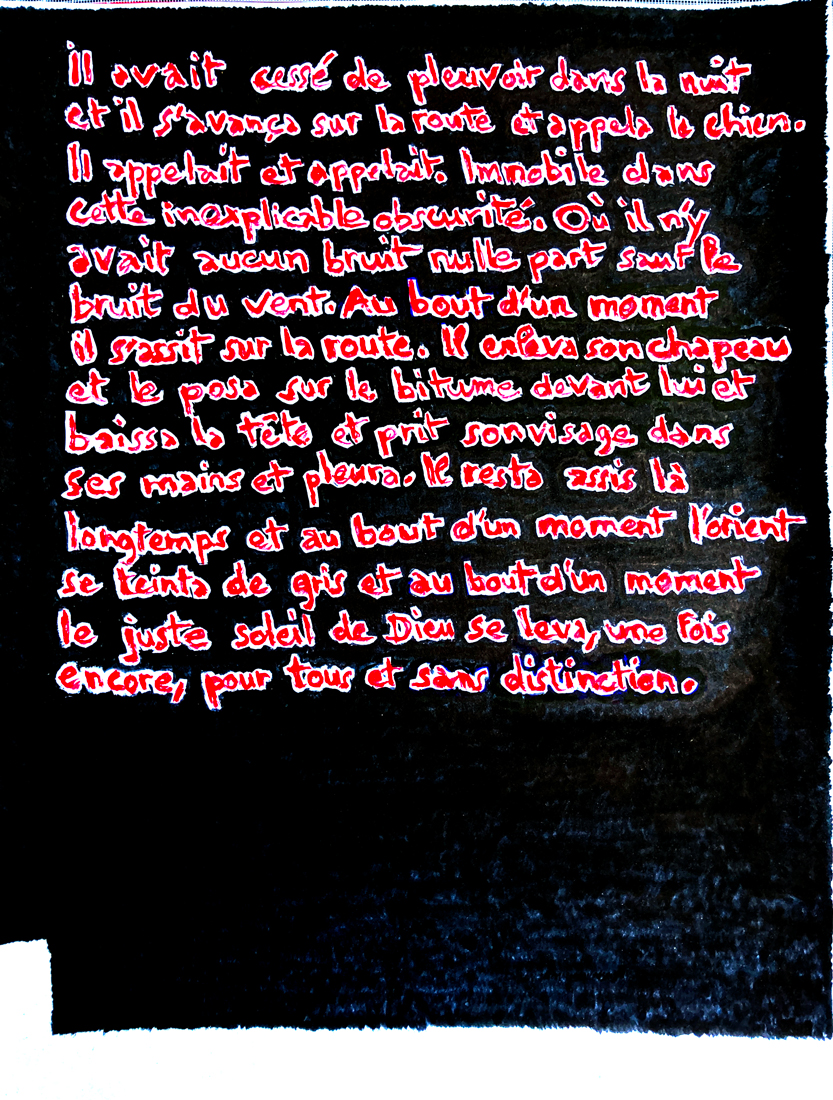 Il avait cessé de pleuvoir dans la nuit
et il s'avança sur la route et appela le chien.
Il appelait et appelait. Immobile dans
cette inexplicable obscurité. Où il n'y
avait aucun bruit nulle part sauf le
bruit du vent. Au bout d'un moment
il s'assit sur la route. Il enleva son chapeau
et le posa sur le bitume devant lui et
baissa la tête et prit son visage dans
ses mains et pleura. Il resta assis là
longtemps et au bout d'un moment l'orient
se teinta de gris et au bout d'un moment
le juste soleil de Dieu se leva, une fois
encore, pour tous et sans distinction.